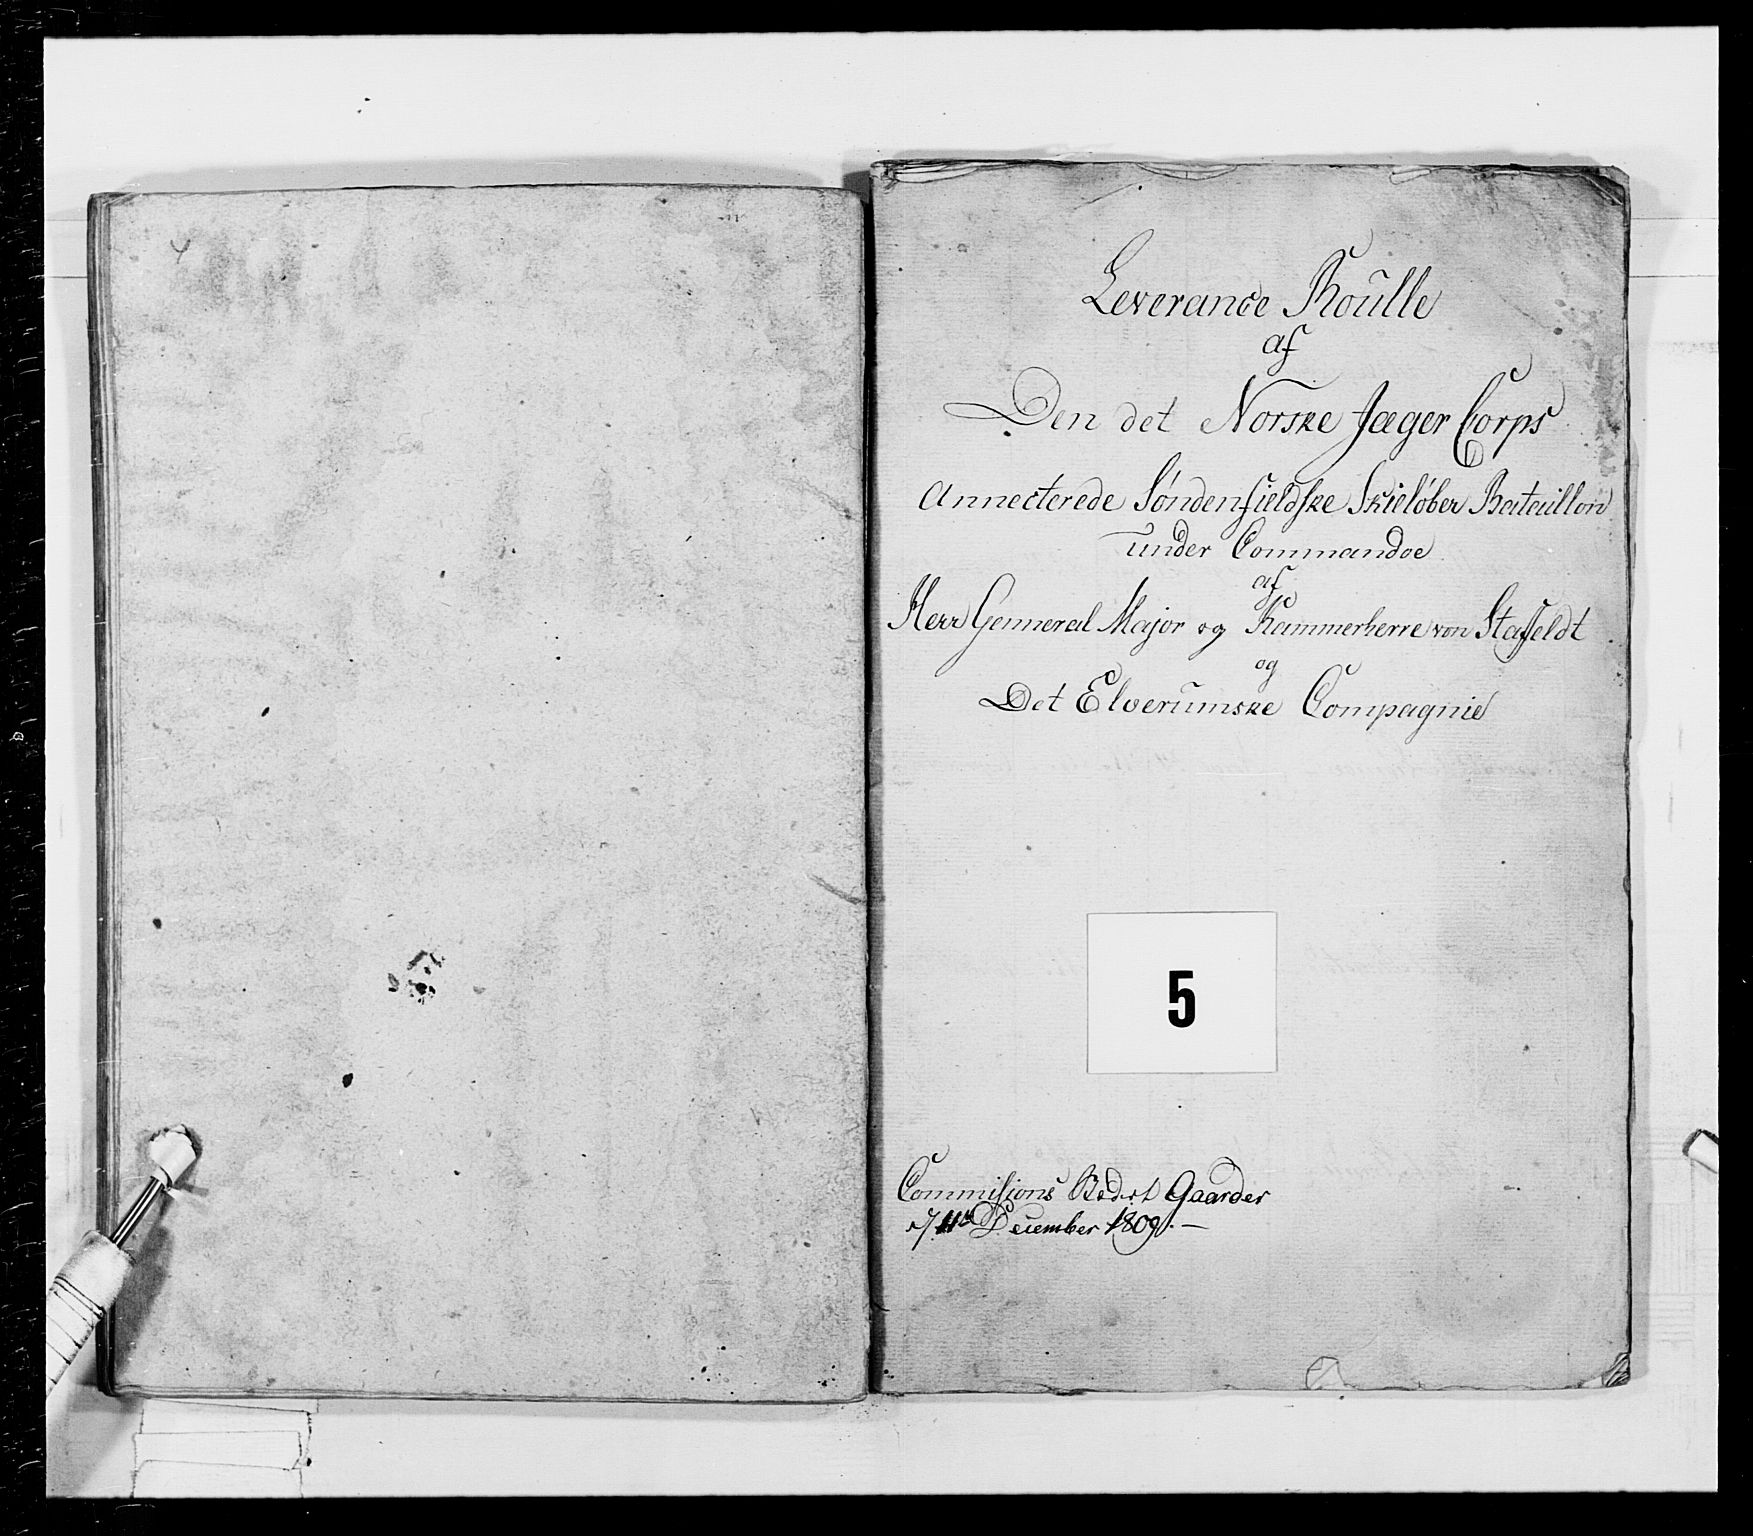 Leverance Roulle
af
Den det Norske Jæger Corps
Annecterede Søndenfieldske Skieløber Bataillon
under Commandoe
af
Herr Genneral Major og Kammerherre von Staffeldt
og
Det Elverumske Compagnie
5
Commisions Bædet Gaarder
d 11te December 1809. —